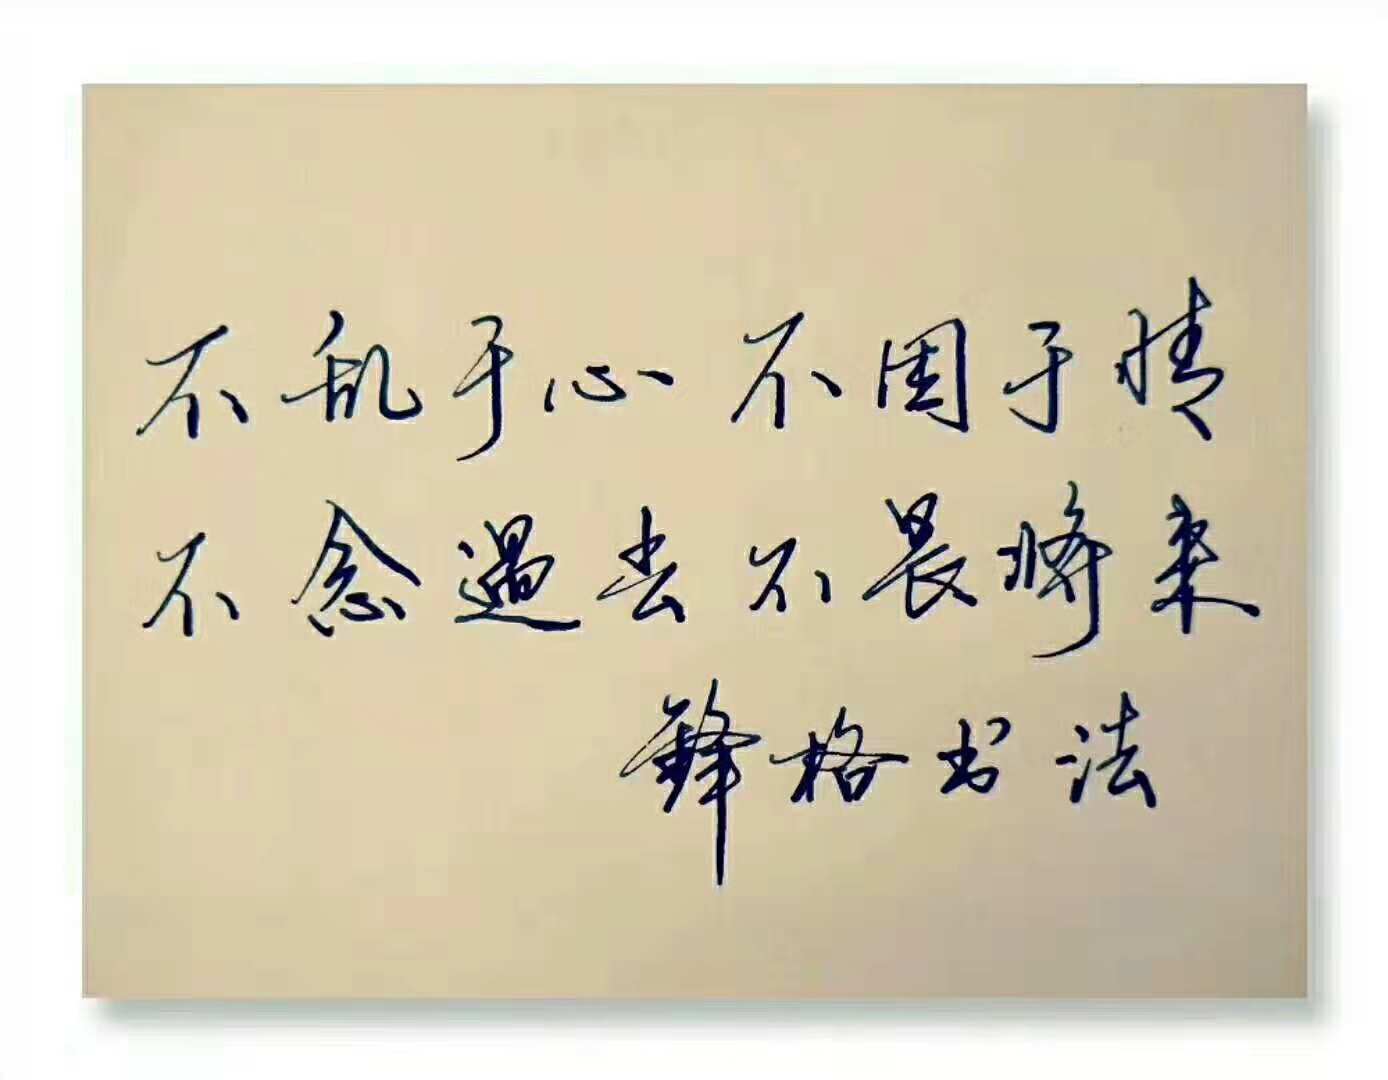 不乱于心 不困于情
不念过去 不畏将来
锋格书法